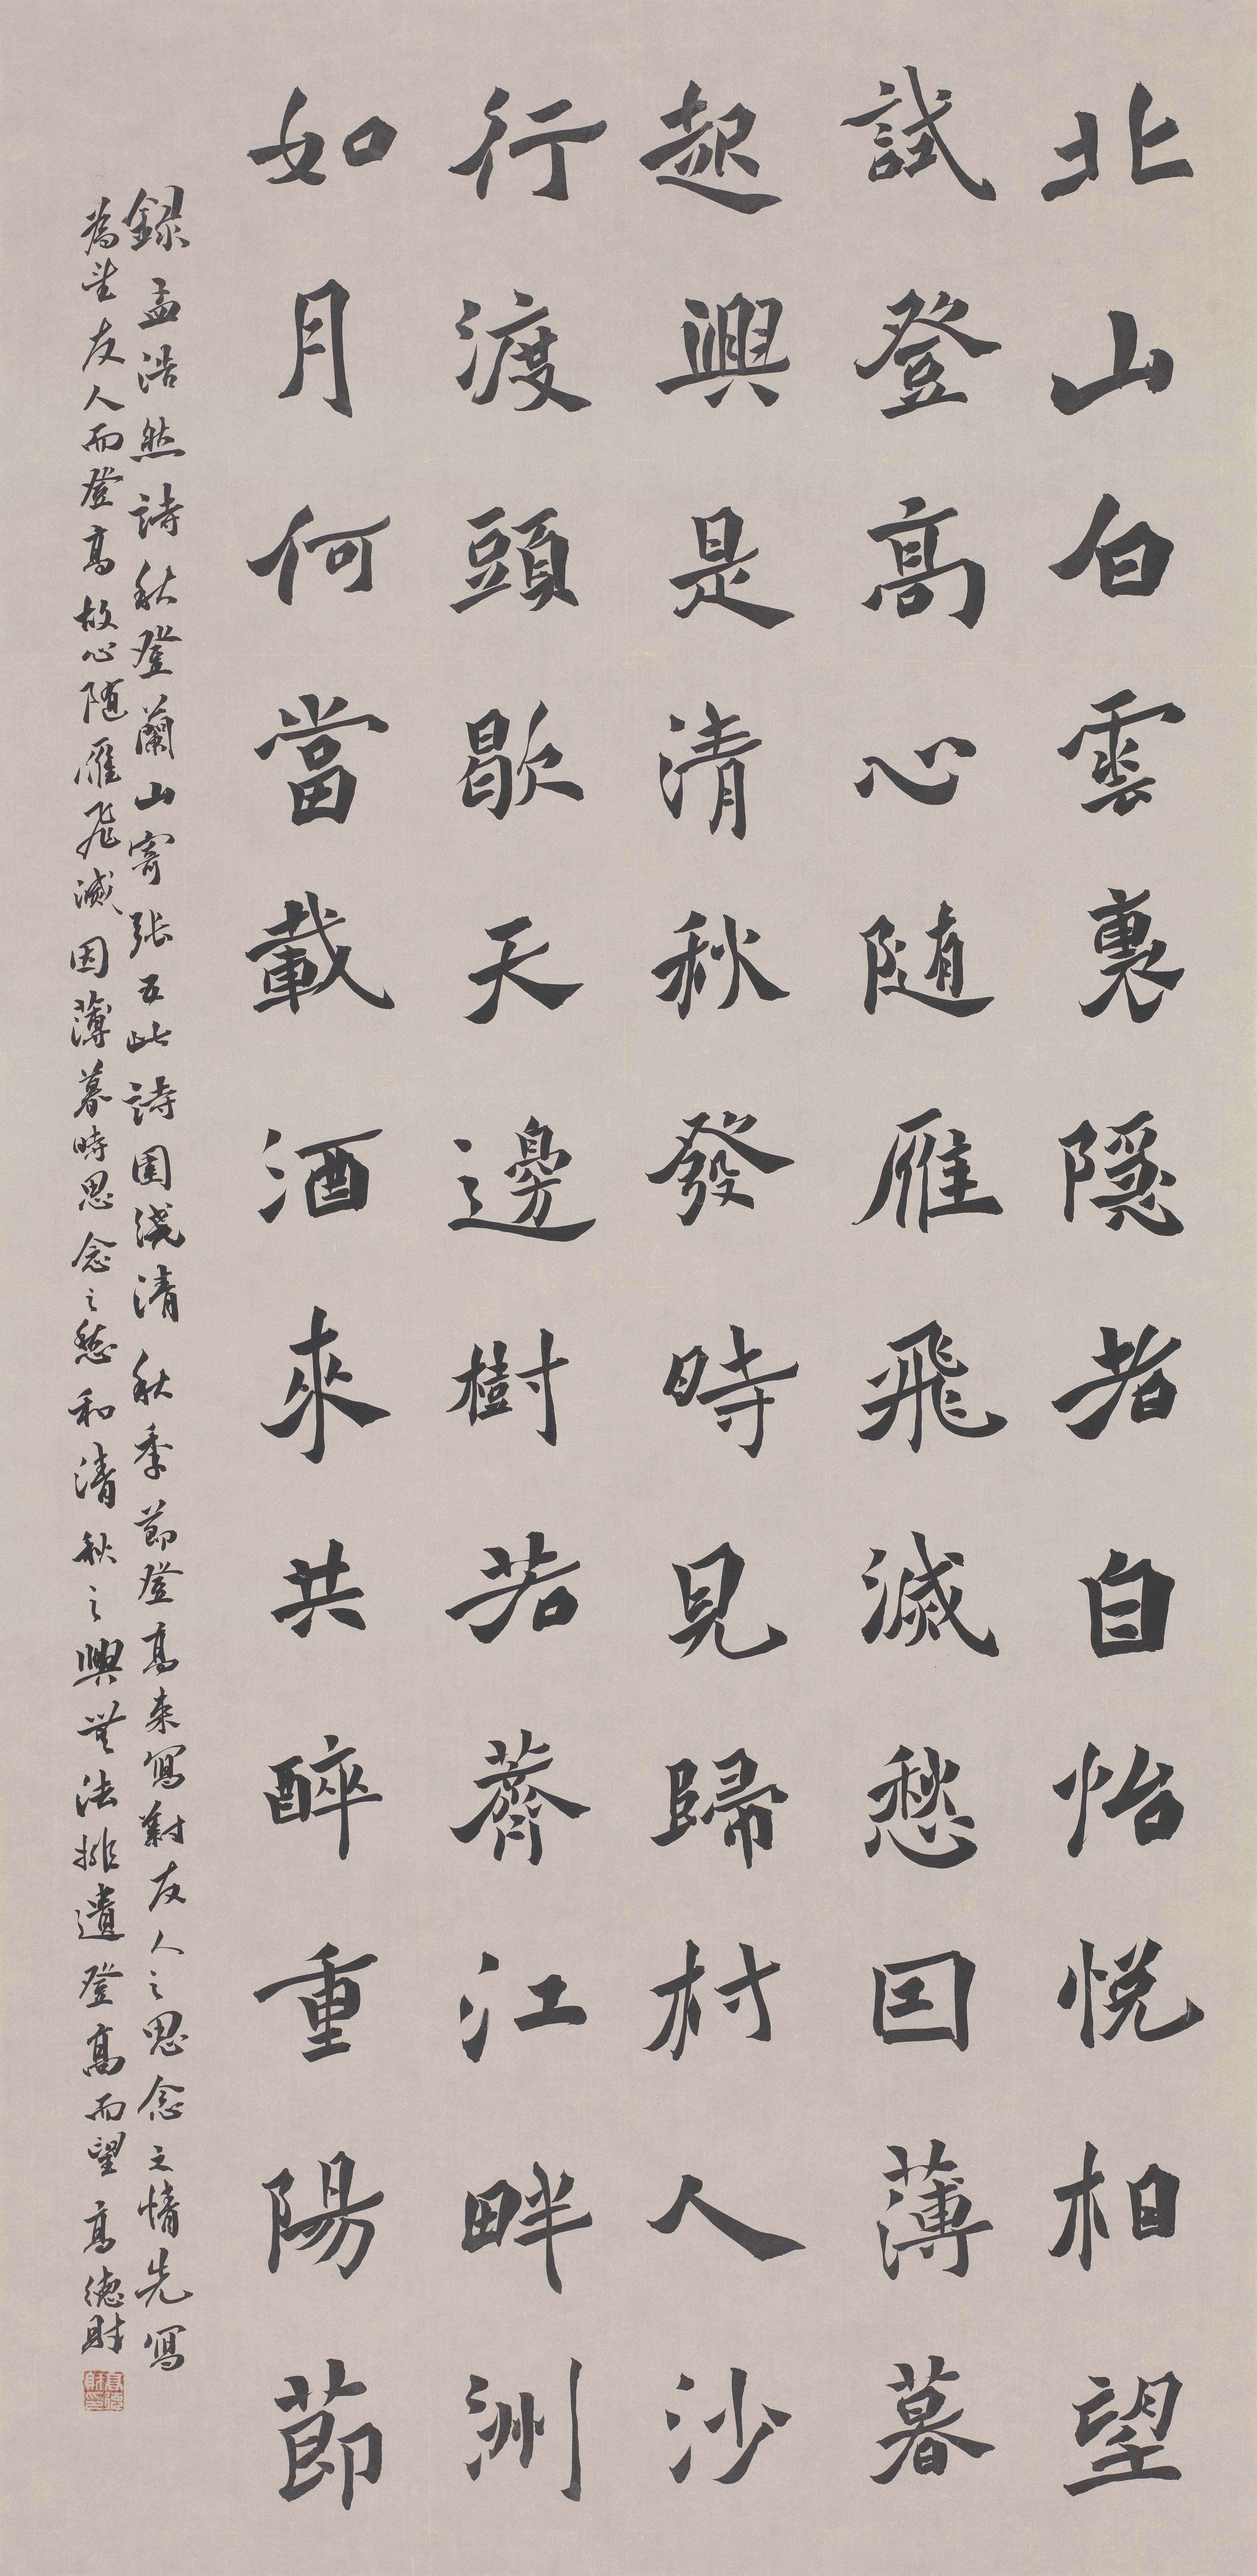 北山白雲裏隱者自怡悅相望
試登高心隨雁飛滅愁因薄暮
起興是清秋發時見歸村人沙
行渡頭歇天邊樹若薺江畔洲
如月何當載酒來共醉重陽節
錄孟浩然詩秋登蘭山寄張五此詩圍繞清秋季節登高來寫對友人之思念之情先寫
為望友人而登高故心隨雁飛滅因薄暮時思念之愁和清秋之興無法排遣登高而望高德財